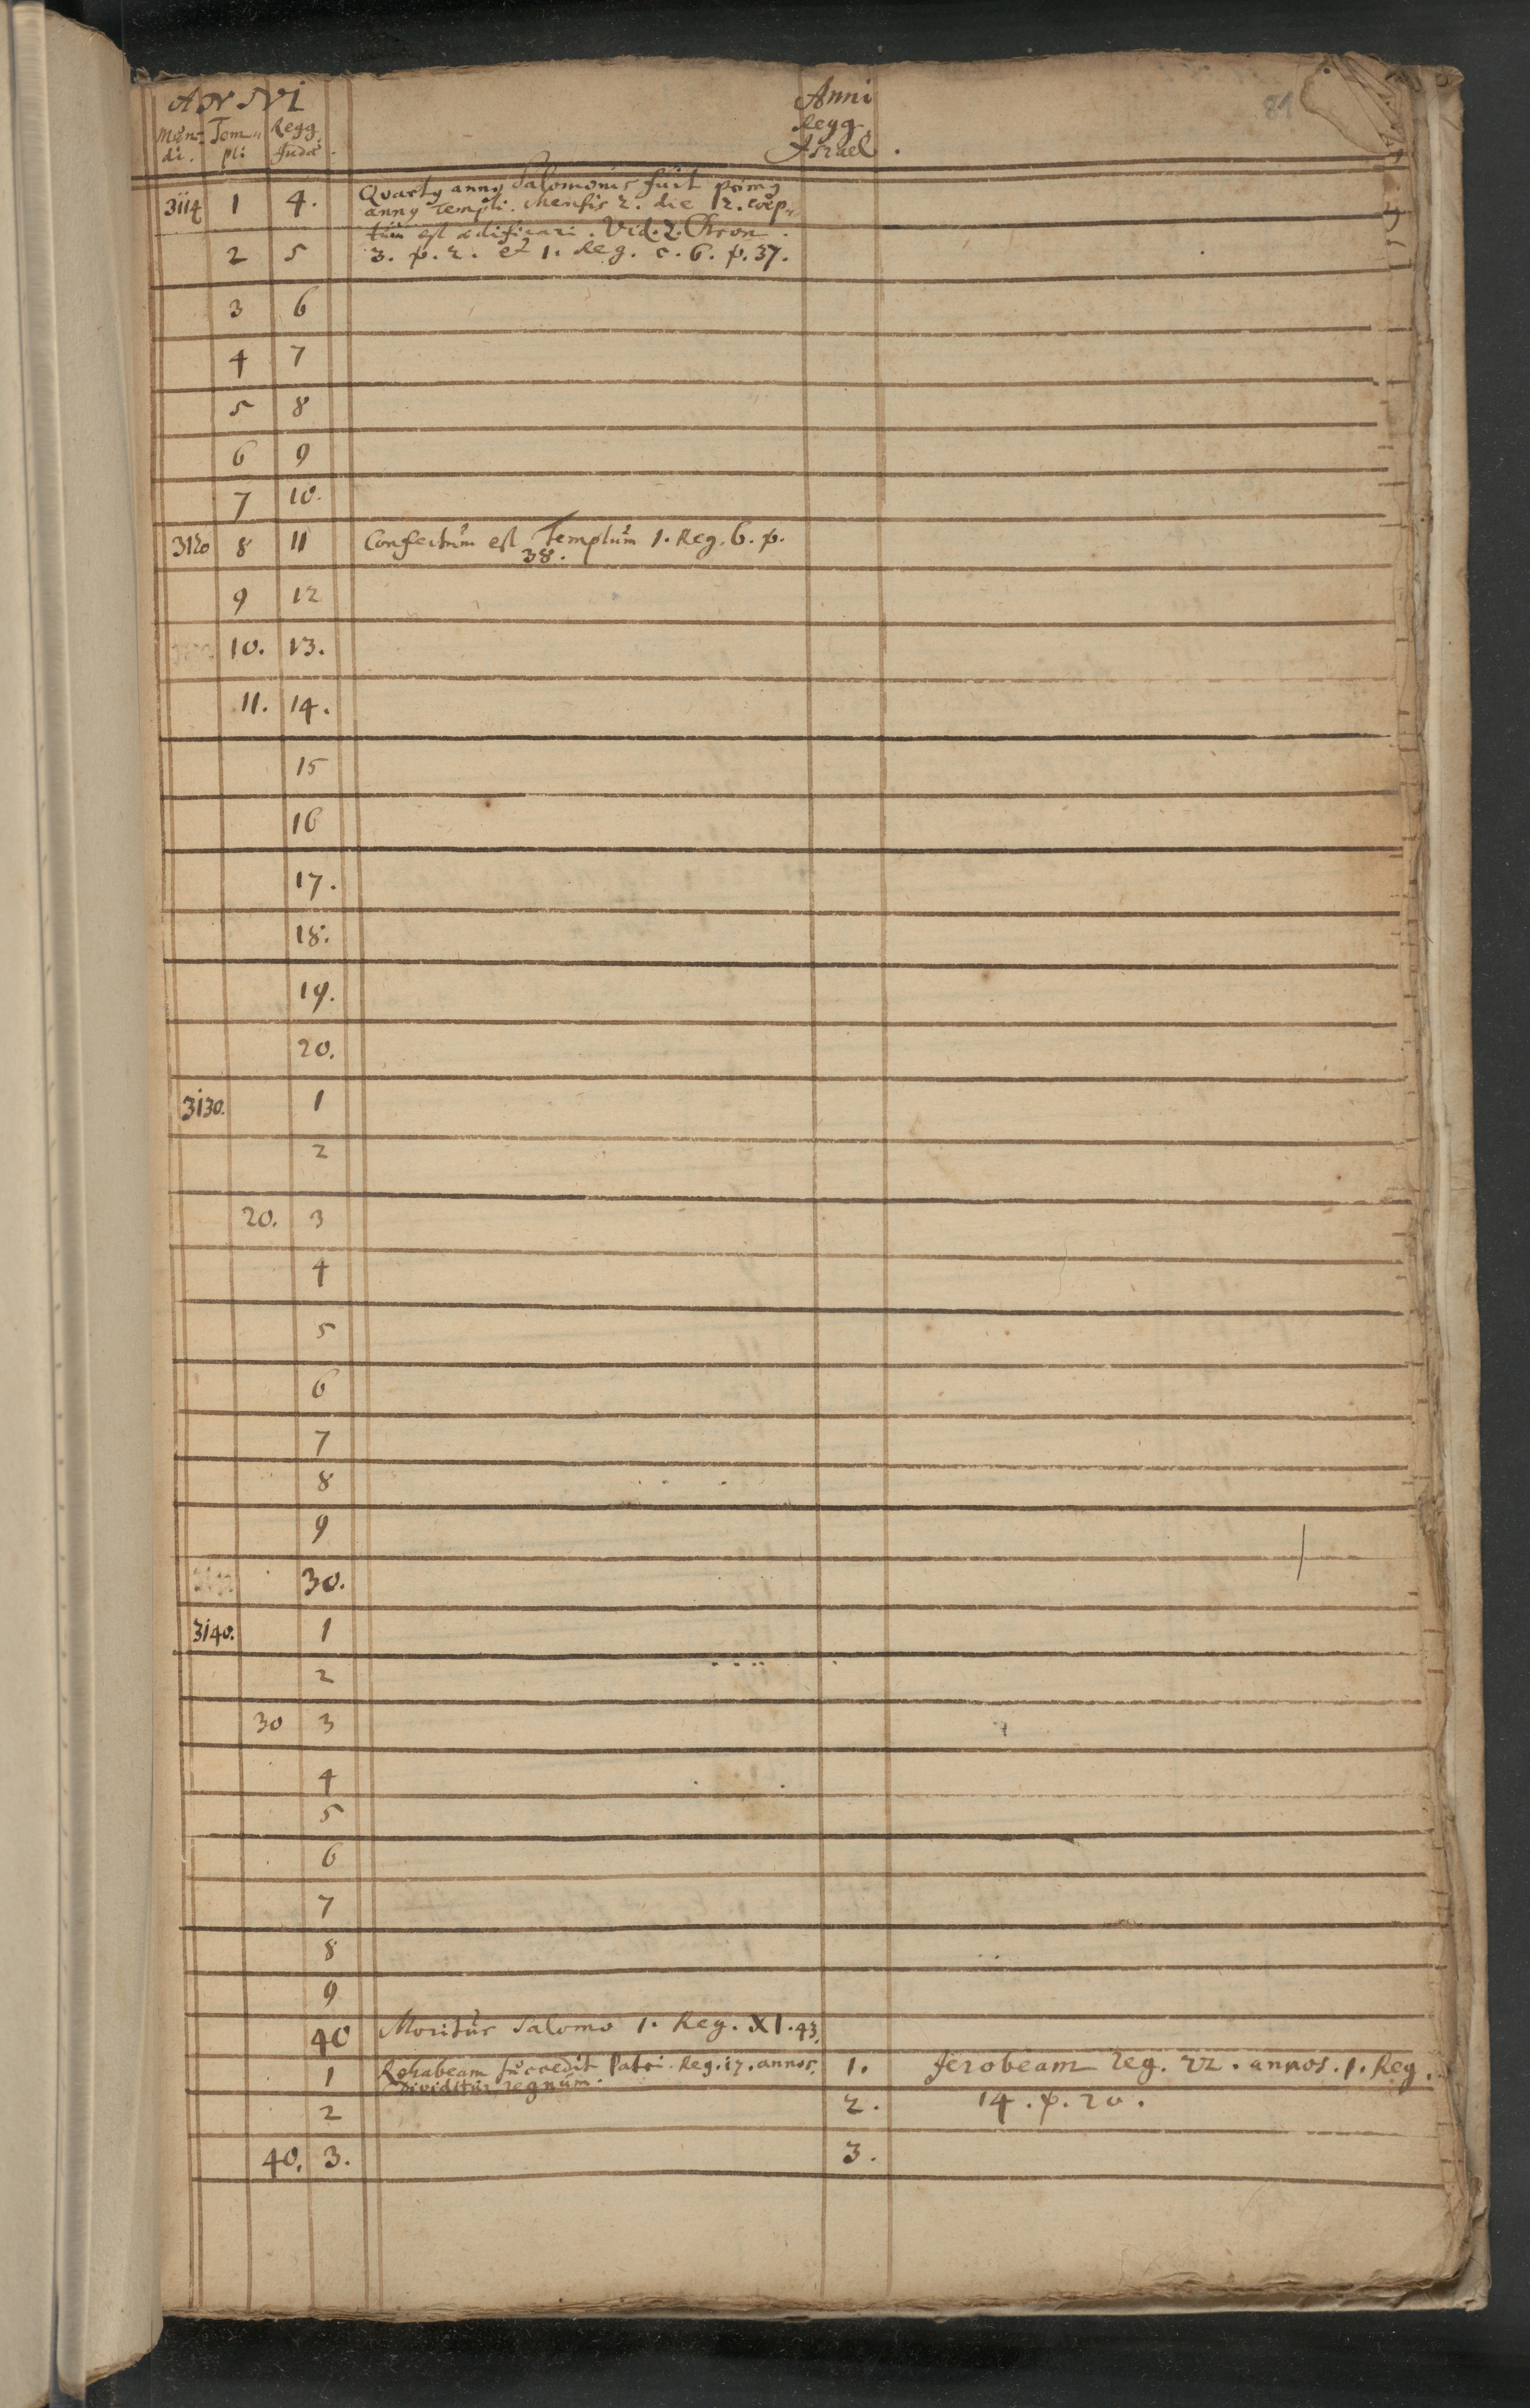 ANNI
Mun-
di.
Tem-
pli
Regg.
Judæ.
Anni
Regg.
Israel.
81
3114 1 4. Quartus annus Salomonis fuit primus
annus Templi. Mensis 2. die 12. coep-
tum est ædificari. Vid. 2. Chron.
2 5 3. p. 2. et 1. Reg. c. 6. p. 37.
3 6
4 7
5 8
6 9
7 10.
3120 8 11 Confectum est Templum 1. Reg. 6. p.
38.
9 12
10. 13.
11. 14.
15
16
17.
18.
19.
20.
3130. 1
2
20. 3
4
5
6
7
8
9
30.
3140. 1
2
30 3
4
5
6
7
8
9
40 Moritur Salomo 1. Reg. XI. 43.
1 Rehabeam succedit Patri. Reg. 17. annos. 1. Jerobeam reg. 22. annos. 1. Reg.
Dividitur regnum.
2 2. 14. p. 20.
40. 3. 3.